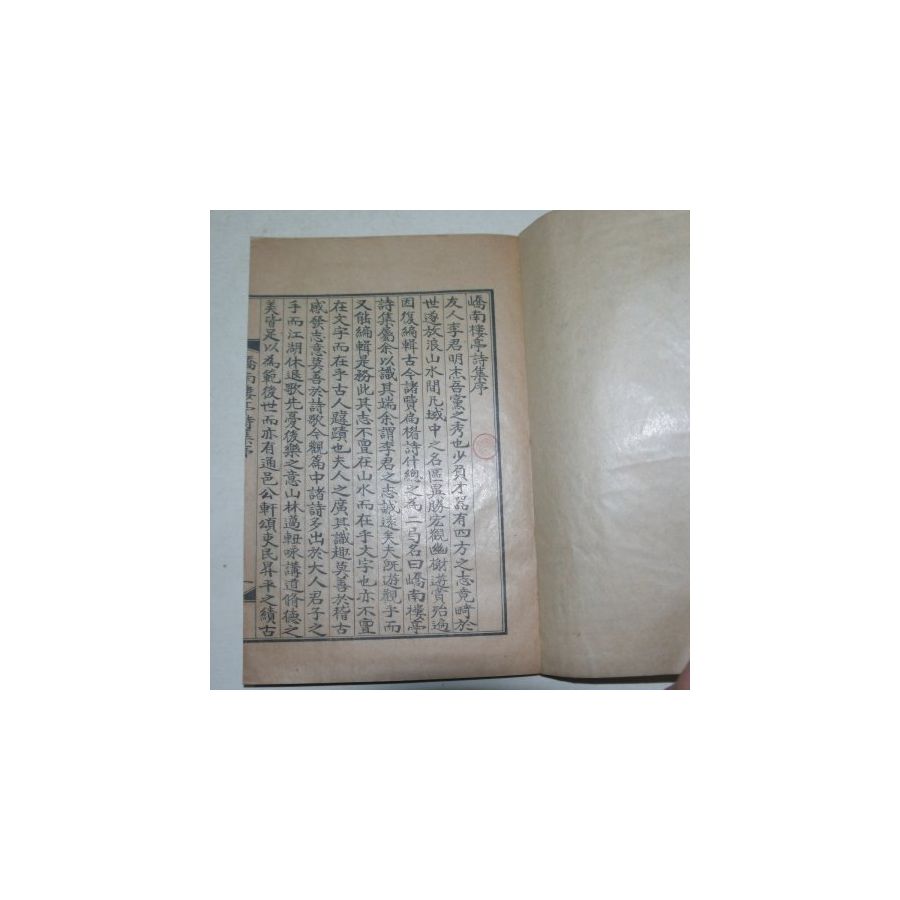 嶠南樓亭詩集序
友人李君明杰吾黨之秀也少負才器有四方之志竟畸於
世遂放浪山水間凡域中之名區畺勝宏觀幽榭遊賞殆遍
因復編輯古今諸賢扁楣詩什總之為二弓名曰嶠南樓亭
詩集屬余以識其端余謂李君之志誠遠矣夫旣遊觀乎而
又能編輯是務此其志不亶在山水而在乎文字也亦不亶
在文字而在乎古人蹟也夫人之廣其識趣莫善於稽古
感發志意莫善於詩歌今觀篇中諸詩多出於大人君子之
手而江湖休退歌先憂後樂之意山林邁軸咏講道脩德之
美皆是以為範後世而亦有通邑公軒頌吏民昇平之績古
嶠南樓亭詩集序